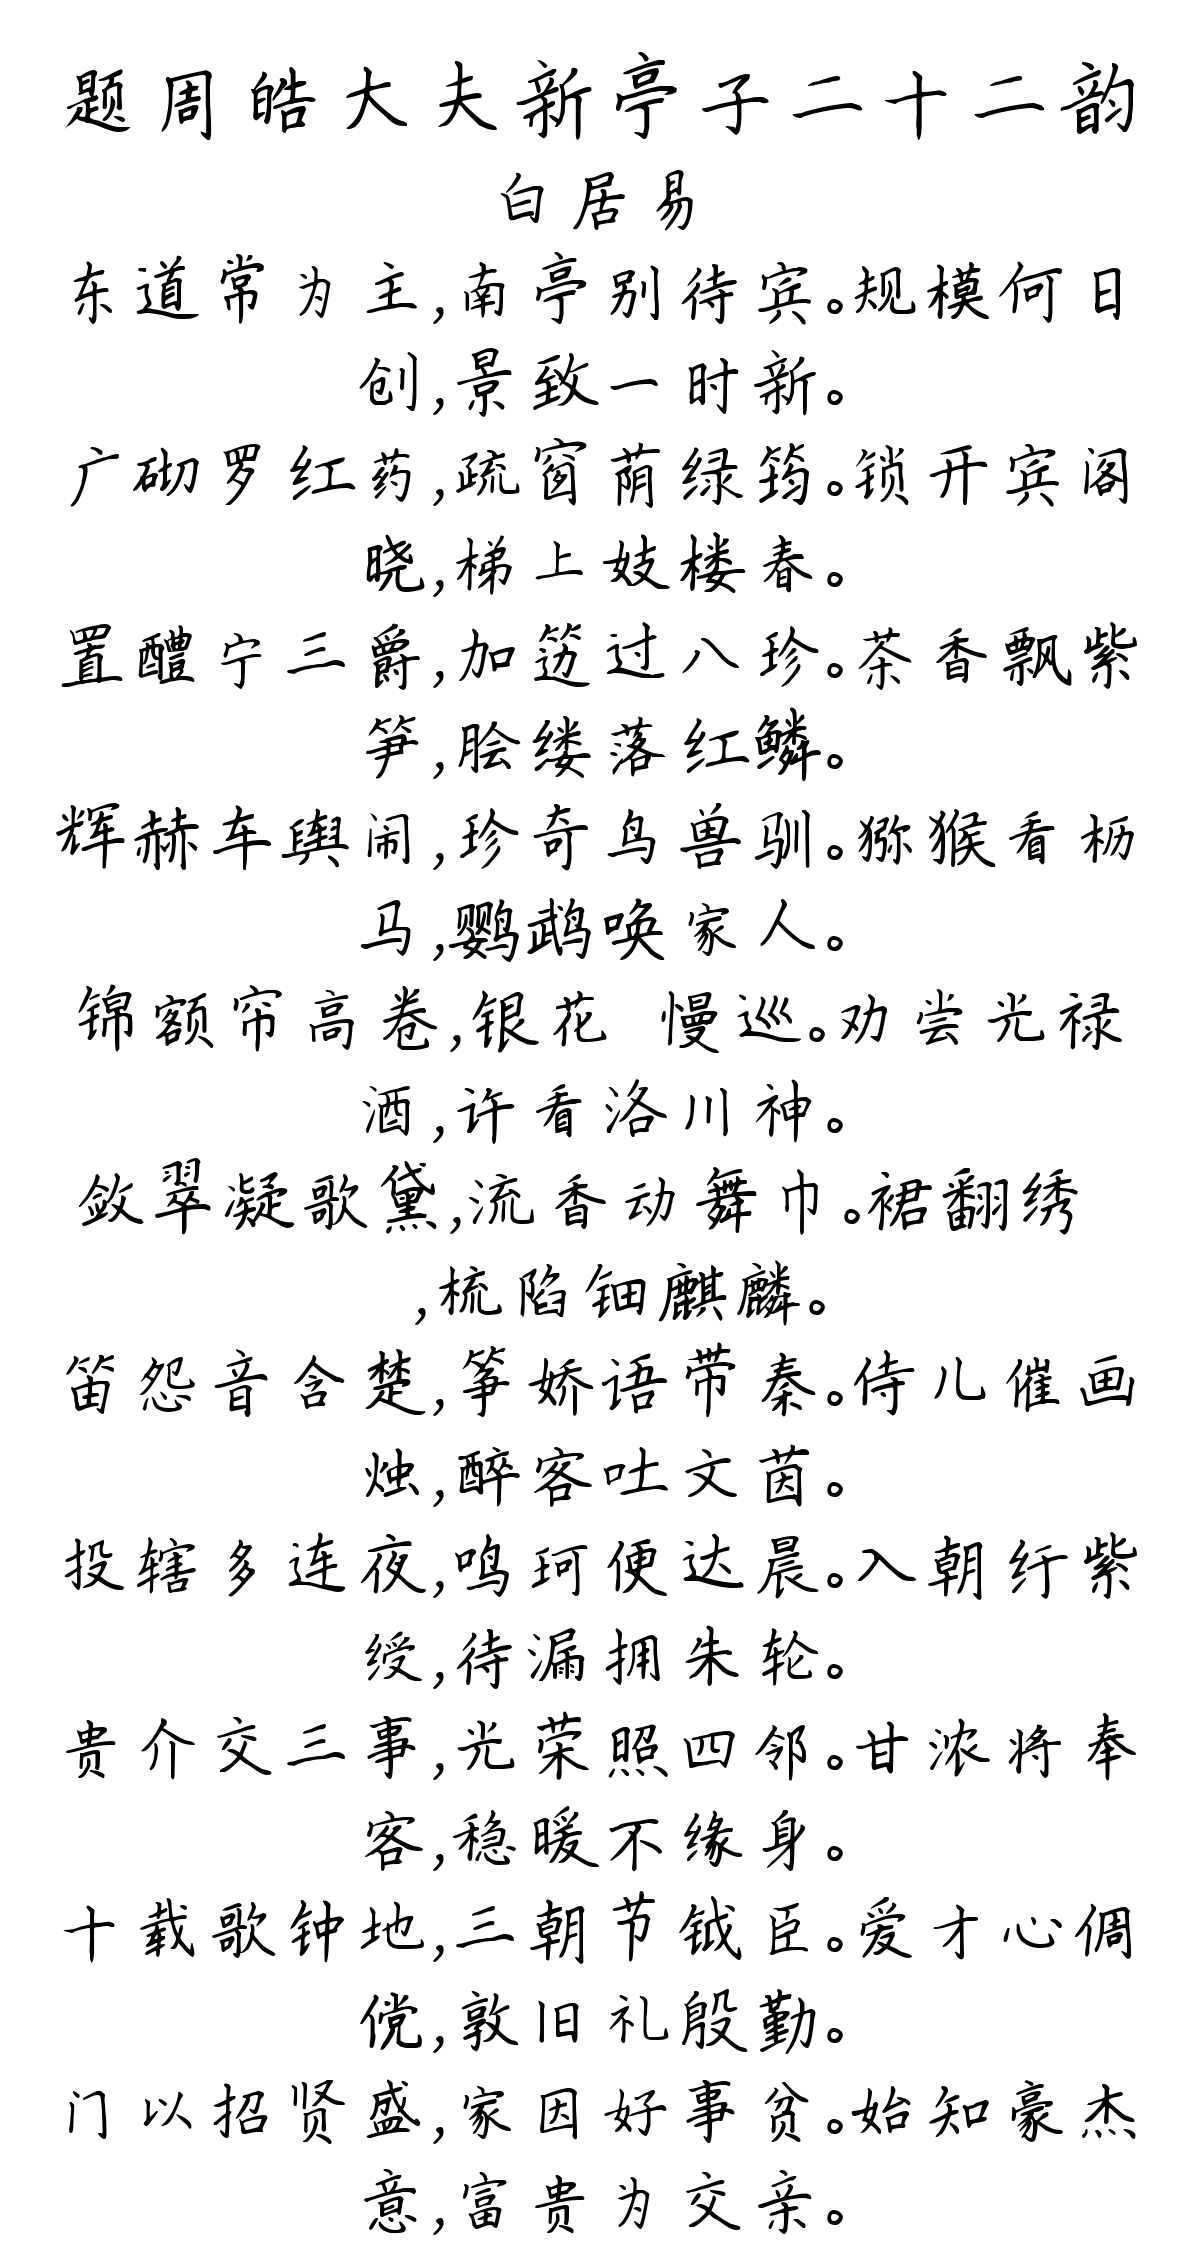 题周皓大夫新亭子二十二韵
白居易
东道常为主,南亭别待宾。规模何日
创,景致一时新。
广砌罗红药,疏窗荫绿筠。锁开宾阁
晓,梯上妓楼春。
置醴宁三爵,加笾过八珍。茶香飘紫
笋,脍缕落红鳞。
辉赫车舆闹,珍奇鸟兽驯。猕猴看枥
马,鹦鹉唤家人。
锦额帘高卷,银花 慢巡。劝尝光禄
酒,许看洛川神。
敛翠凝歌黛,流香动舞巾。裙翻绣
,梳陷钿麒麟。
笛怨音含楚,筝娇语带秦。侍儿催画
烛,醉客吐文茵。
投辖多连夜,鸣珂便达晨。入朝纡紫
绶,待漏拥朱轮。
贵介交三事,光荣照四邻。甘浓将奉
客,稳暖不缘身。
十载歌钟地,三朝节钺臣。爱才心倜
傥,敦旧礼殷勤。
门以招贤盛,家因好事贫。始知豪杰
意,富贵为交亲。